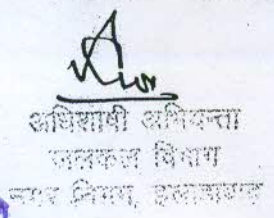 अधिशाषी अभियन्ता
जलकल विभाग
नगर निगम, इलाहाबाद